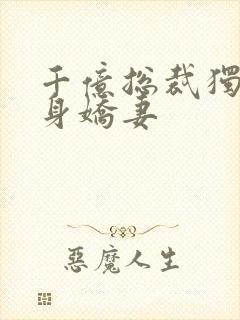 千億總裁獨
身嬌妻
惡魔人生